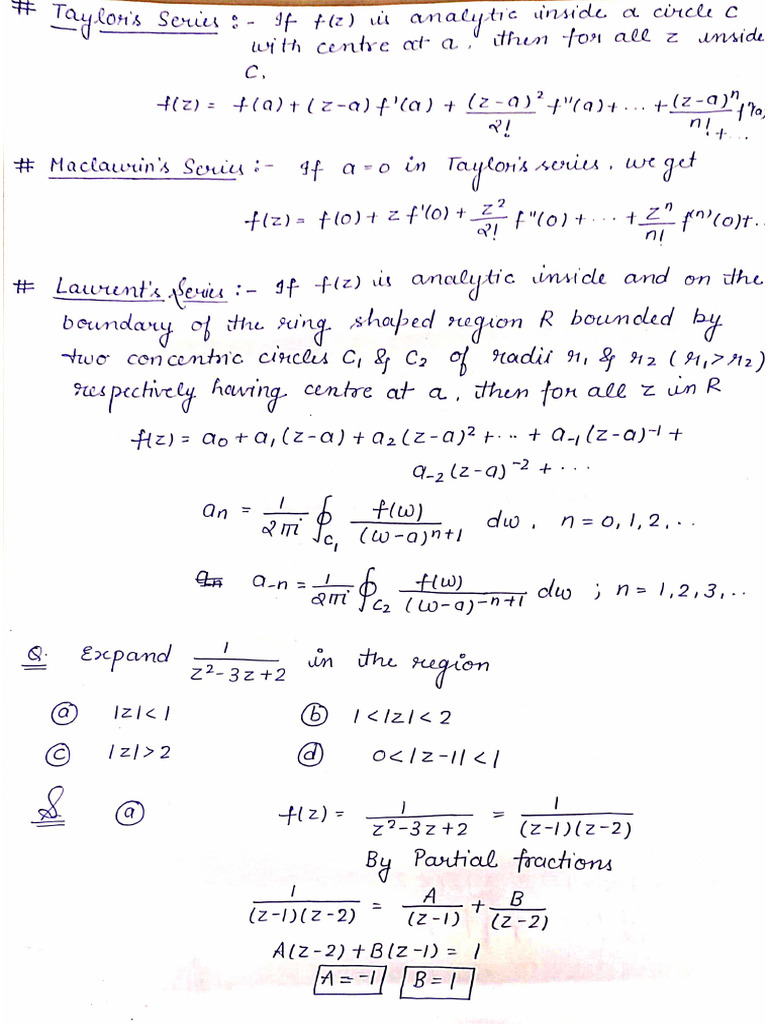 # Taylor's Series :- If f(z) is analytic inside a circle C
with centre at a, then for all z inside
C.
f(z) = f(a) + (z-a) f'(a) + (z-a)²/2! f''(a) + ... + (z-a)ⁿ/n! fⁿ(a)
+ ...
# Maclaurin's Series :- If a=0 in Taylor's series, we get
f(z) = f(0) + z f'(0) + z²/2! f''(0) + ... + zⁿ/n! f⁽ⁿ⁾(0)+..
# Laurent's Series :- If f(z) is analytic inside and on the
boundary of the ring shaped region R bounded by
two concentric circles C₁ & C₂ of radii r₁ & r₂ (r₁>r₂)
respectively having centre at a, then for all z in R
f(z) = a₀ + a₁(z-a) + a₂(z-a)² + ... + a₋₁(z-a)⁻¹ +
a₋₂(z-a)⁻² + ...
aₙ = 1/2πi ∮C₁ f(ω)/(ω-a)ⁿ⁺¹ dω, n = 0, 1, 2, ..
a₋ₙ = 1/2πi ∮C₂ f(ω)/(ω-a)⁻ⁿ⁺¹ dω ; n = 1, 2, 3, ..
Q. Expand 1/z²-3z+2 in the region
(a) |z|<1 (b) 1<|z|<2
(c) |z|>2 (d) 0<|z-1|<1
S. (a) f(z) = 1/z²-3z+2 = 1/(z-1)(z-2)
By Partial fractions
1/(z-1)(z-2) = A/(z-1) + B/(z-2)
A(z-2) + B(z-1) = 1
A=-1 B=1